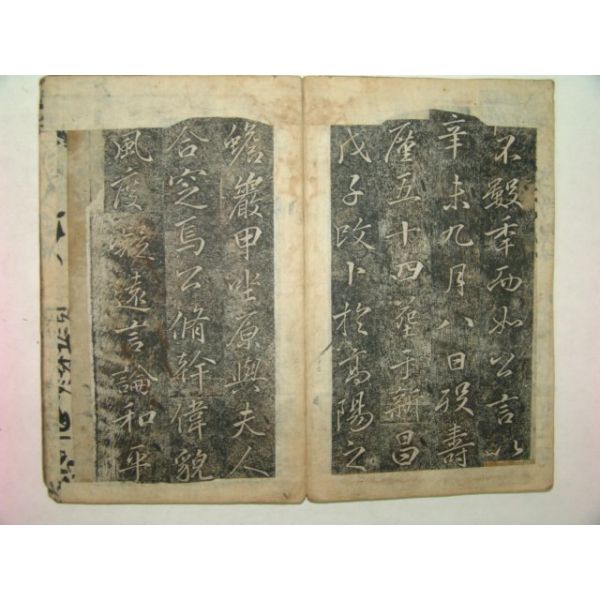 不數年而如公言以
辛未九月八日歿壽
歷五十四葬于新昌
戊子改卜於高陽之
蟾巖甲坐原與夫人
合窆焉公脩幹偉貌
風度凝遠言論和平